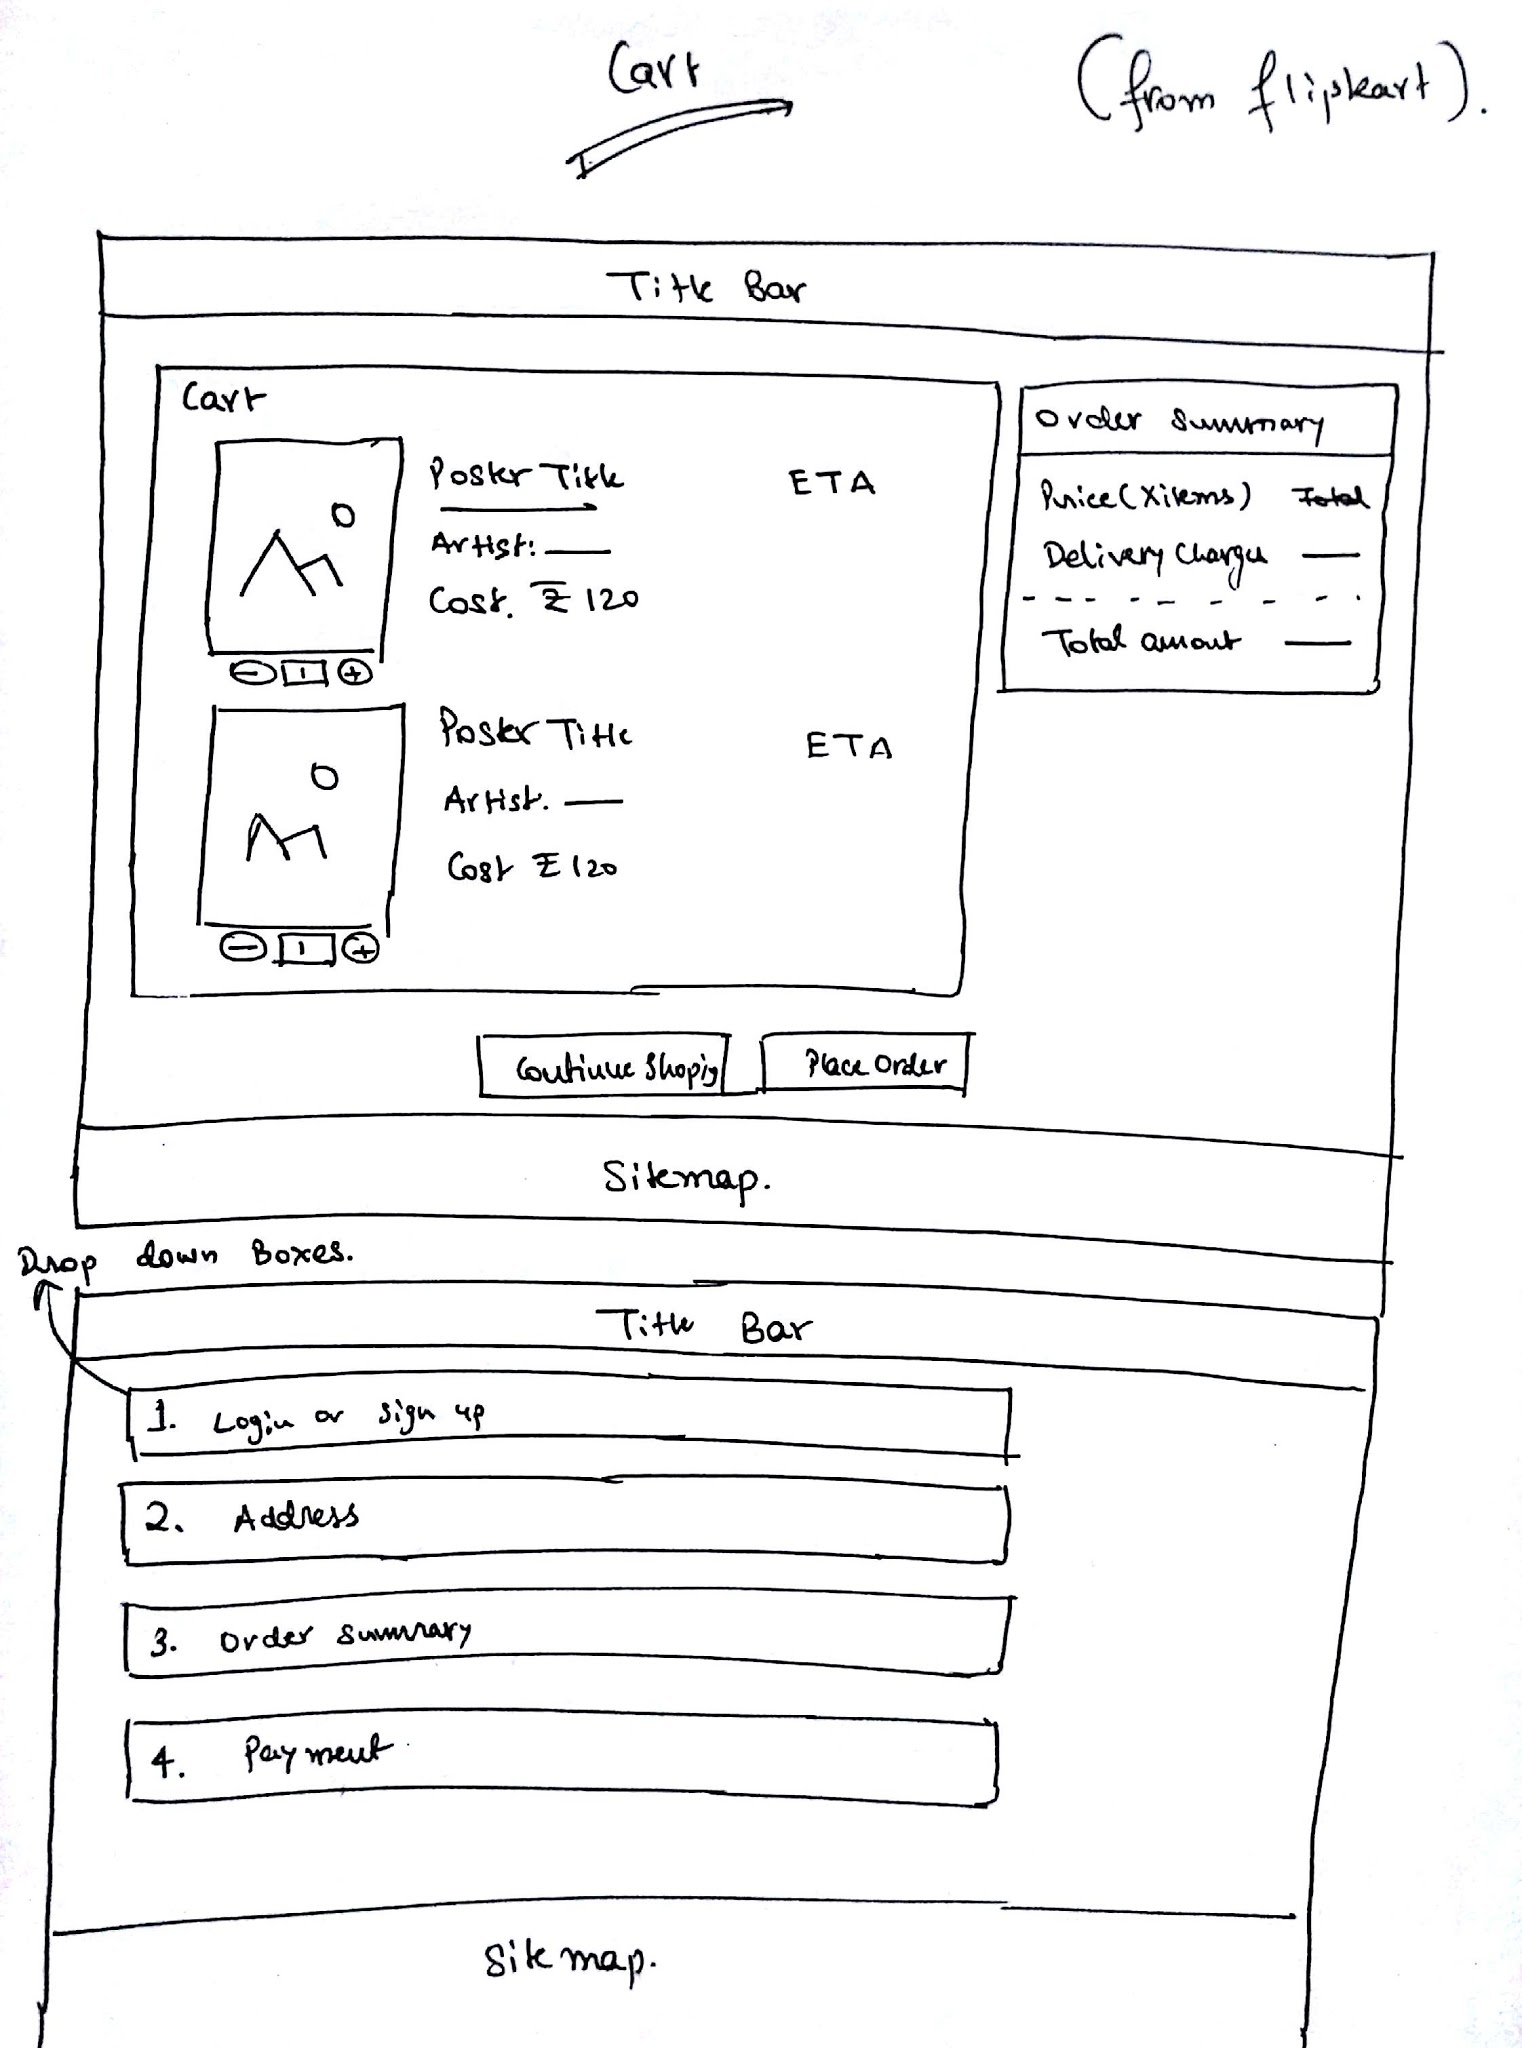 Cart
(from flipkart).
Title Bar
Cart
Poster Title
ETA
Artist:
Cost. ₹ 120
- 1 +
Poster Title
ETA
Artist.
Cost ₹ 120
- 1 +
Order Summary
Price (X items) Total
Delivery Charges
Total amout
Continue Shopig
Place Order
Sitemap.
Drop down Boxes.
Title Bar
1. Login or sign up
2. Address
3. Order summary
4. Payment
Sitemap.